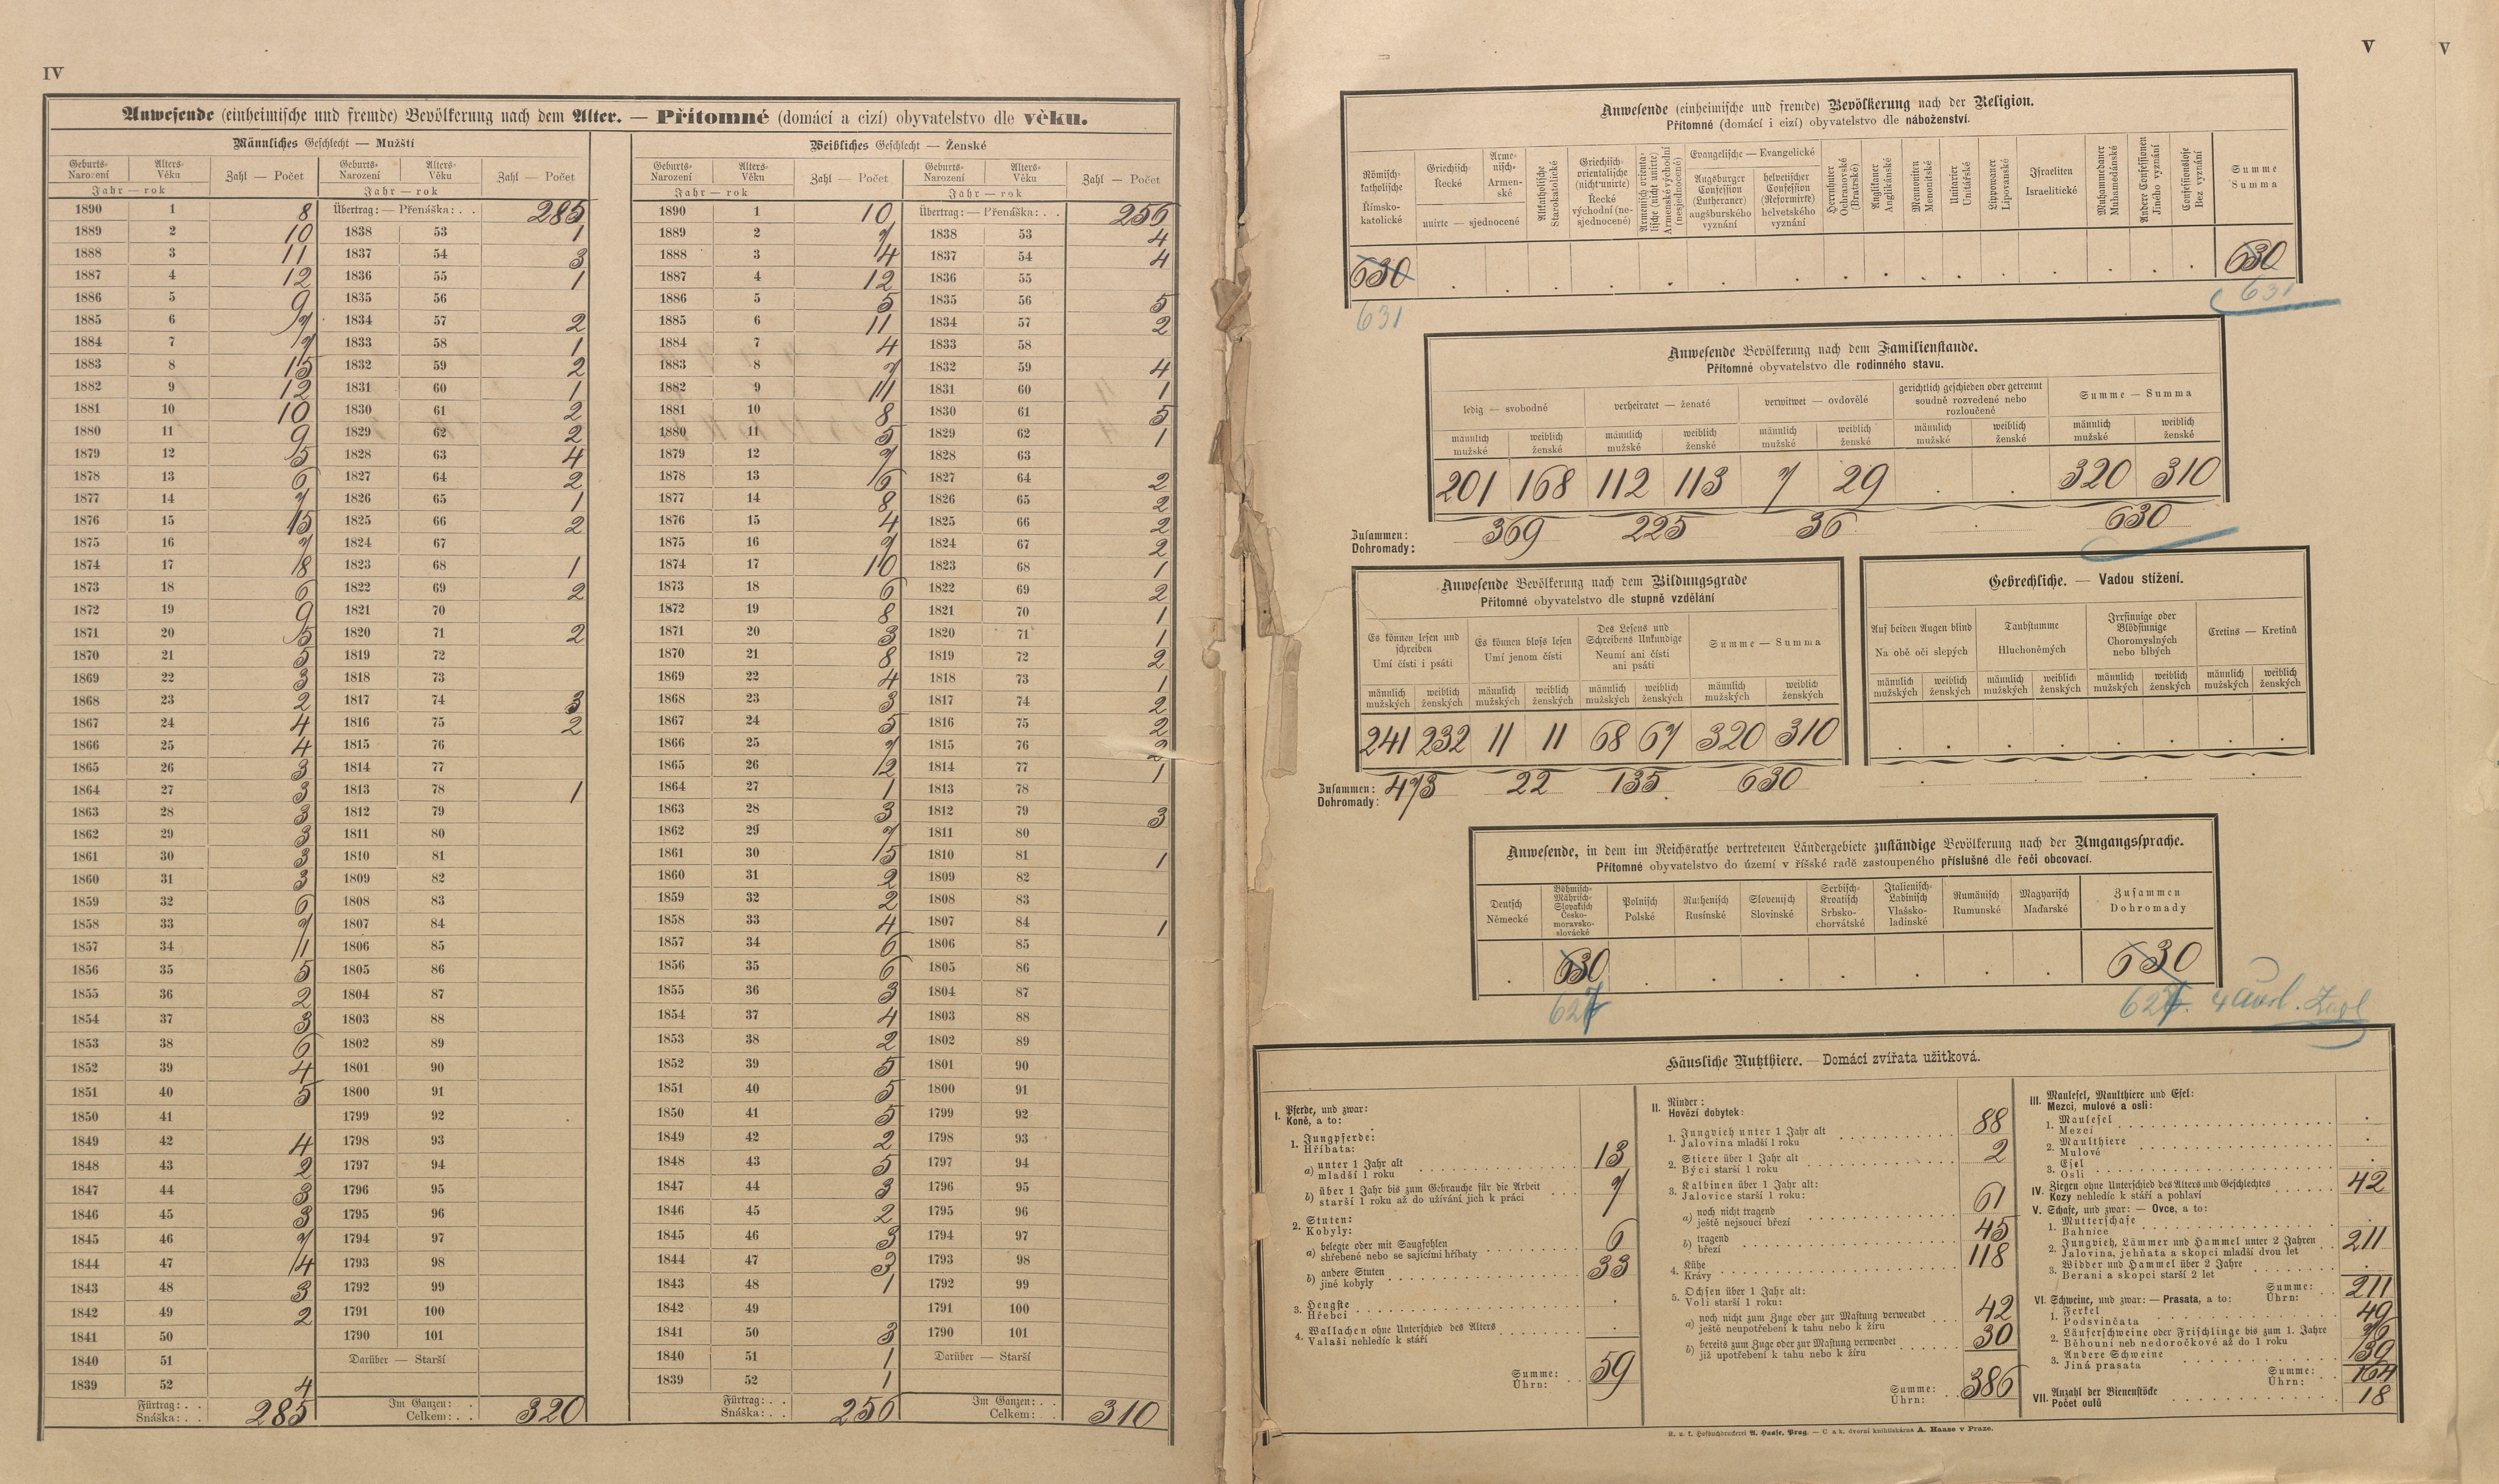 IV
Anwesende (einheimische und fremde) Bevölkerung nach dem Alter. — Přítomné (domácí a cizí) obyvatelstvo dle věku.
Männliches Geschlecht — Mužští
Geburts- Narození Alters- Věku Zahl — Počet Geburts- Narození Alters- Věku Zahl — Počet
Jahr — rok Jahr — rok
1890 1 8 Übertrag: — Přenáška: . . 285
1889 2 10 1838 53 1
1888 3 11 1837 54 3
1887 4 12 1836 55 1
1886 5 9 1835 56
1885 6 7 1834 57 2
1884 7 7 1833 58 1
1883 8 15 1832 59 2
1882 9 12 1831 60 1
1881 10 10 1830 61 2
1880 11 9 1829 62 2
1879 12 5 1828 63 4
1878 13 6 1827 64 2
1877 14 7 1826 65 1
1876 15 15 1825 66 2
1875 16 7 1824 67
1874 17 8 1823 68 1
1873 18 6 1822 69 2
1872 19 9 1821 70
1871 20 5 1820 71 2
1870 21 5 1819 72
1869 22 3 1818 73
1868 23 2 1817 74 3
1867 24 4 1816 75 2
1866 25 4 1815 76
1865 26 3 1814 77
1864 27 3 1813 78 1
1863 28 3 1812 79
1862 29 3 1811 80
1861 30 3 1810 81
1860 31 3 1809 82
1859 32 6 1808 83
1858 33 7 1807 84
1857 34 11 1806 85
1856 35 5 1805 86
1855 36 2 1804 87
1854 37 3 1803 88
1853 38 6 1802 89
1852 39 4 1801 90
1851 40 5 1800 91
1850 41 1799 92
1849 42 4 1798 93
1848 43 2 1797 94
1847 44 3 1796 95
1846 45 3 1795 96
1845 46 7 1794 97
1844 47 4 1793 98
1843 48 3 1792 99
1842 49 2 1791 100
1841 50 1790 101
1840 51 Darüber — Starší
1839 52 4
Fürtrag: . . Snáška: . . 285 Im Ganzen: . . Celkem: . . 320
Weibliches Geschlecht — Ženské
Geburts- Narození Alters- Věku Zahl — Počet Geburts- Narození Alters- Věku Zahl — Počet
Jahr — rok Jahr — rok
1890 1 10 Übertrag: — Přenáška: . . 256
1889 2 7 1838 53 4
1888 3 14 1837 54 4
1887 4 12 1836 55
1886 5 5 1835 56 5
1885 6 11 1834 57 2
1884 7 4 1833 58
1883 8 7 1832 59 4
1882 9 11 1831 60 1
1881 10 8 1830 61 5
1880 11 5 1829 62 1
1879 12 7 1828 63
1878 13 6 1827 64 2
1877 14 8 1826 65 2
1876 15 4 1825 66 2
1875 16 7 1824 67 2
1874 17 10 1823 68 1
1873 18 6 1822 69 2
1872 19 8 1821 70 1
1871 20 3 1820 71 1
1870 21 8 1819 72 2
1869 22 4 1818 73 1
1868 23 3 1817 74 2
1867 24 5 1816 75 2
1866 25 7 1815 76 2
1865 26 12 1814 77 1
1864 27 1 1813 78
1863 28 3 1812 79 3
1862 29 7 1811 80
1861 30 15 1810 81 1
1860 31 2 1809 82
1859 32 2 1808 83
1858 33 4 1807 84 1
1857 34 6 1806 85
1856 35 6 1805 86
1855 36 3 1804 87
1854 37 4 1803 88
1853 38 2 1802 89
1852 39 5 1801 90
1851 40 5 1800 91
1850 41 5 1799 92
1849 42 2 1798 93
1848 43 5 1797 94
1847 44 3 1796 95
1846 45 2 1795 96
1845 46 3 1794 97
1844 47 3 1793 98
1843 48 1 1792 99
1842 49 1791 100
1841 50 3 1790 101
1840 51 1 Darüber — Starší
1839 52 1
Fürtrag: . . Snáška: . . 256 Im Ganzen: . . Celkem: . . 310
V
V
Anwesende (einheimische und fremde) Bevölkerung nach der Religion.
Přítomné (domácí i cizí) obyvatelstvo dle náboženství.
Römisch-katholische Římsko-katolické
Griechisch- Řecké
Armenisch- Armenské
unirte — sjednocené
Altkatholische Starokatolické
Griechisch-orientalische (nicht unirte) Řecké východní (nesjednocené)
Armenisch orientalische (nicht unirte) Armenské východní (nesjednocené)
Evangelische — Evangelické
Augsburger Confession (Lutheraner) augšburského vyznání
helvetischer Confession (Reformirte) helvetského vyznání
Herrnhuter Ochranovské (Bratrské)
Anglikaner Anglikánské
Mennoniten Menonitské
Unitarier Unitářské
Lippowaner Lipovanské
Israeliten Israelitické
Muhammedaner Muhamedánské
Andere Confessionen Jiného vyznání
Confessionslose Bez vyznání
Summe Summa
630 630
631 631
Anwesende Bevölkerung nach dem Familienstande.
Přítomné obyvatelstvo dle rodinného stavu.
ledig — svobodné verheiratet — ženaté verwitwet — ovdovělé gerichtlich geschieden oder getrennt soudně rozvedené nebo rozloučené Summe — Summa
männlich mužské weiblich ženské männlich mužské weiblich ženské männlich mužské weiblich ženské männlich mužské weiblich ženské männlich mužské weiblich ženské
201 168 112 113 7 29 . . 320 310
Zusammen: Dohromady: 369 225 36 . 630
Anwesende Bevölkerung nach dem Bildungsgrade
Přítomné obyvatelstvo dle stupně vzdělání
Es können lesen und schreiben Umí čísti i psáti
Es können bloß lesen Umí jenom čísti
Des Lesens und Schreibens Unkundige Neumí ani čísti ani psáti
Summe — Summa
männlich mužských weiblich ženských männlich mužských weiblich ženských männlich mužských weiblich ženských männlich mužských weiblich ženských
241 232 11 11 68 67 320 310
Zusammen: Dohromady: 473 22 135 630
Gebrechliche. — Vadou stížení.
Auf beiden Augen blind Na obě oči slepých
Taubstumme Hluchoněmých
Irrsinnige oder Blödsinnige Choromyslných nebo blbých
Cretins — Kretinů
männlich mužských weiblich ženských männlich mužských weiblich ženských männlich mužských weiblich ženských männlich mužských weiblich ženských
Anwesende, in dem im Reichsrathe vertretenen Ländergebiete zuständige Bevölkerung nach der Umgangssprache.
Přítomné obyvatelstvo do území v říšské radě zastoupeného příslušné dle řeči obcovací.
Deutsch Německé
Böhmisch-Mährisch-Slovakisch Česko-moravsko-slovácké
Polnisch Polské
Ruthenisch Rusínské
Slovenisch Slovinské
Serbisch-Kroatisch Srbsko-chorvátské
Italienisch-Ladinisch Vlašsko-ladinské
Rumänisch Rumunské
Magyarisch Maďarské
Zusammen Dohromady
630 630
627 627. 4 Ausl.
Häusliche Nutzthiere. — Domácí zvířata užitková.
I. Pferde, und zwar:
Koně, a to:
1. Jungpferde:
Hříbata:
a) unter 1 Jahr alt
mladší 1 roku 13
b) über 1 Jahr bis zum Gebrauche für die Arbeit
starší 1 roku až do užívání jich k práci 7
2. Stuten:
Kobyly:
a) belegte oder mit Saugfohlen
shřebené nebo se sajícími hříbaty 6
b) andere Stuten
jiné kobyly 33
3. Hengste
Hřebci .
4. Wallachen ohne Unterschied des Alters
Valaši nehledíc k stáří .
Summe: Úhrn: 59
II. Rinder:
Hovězí dobytek:
1. Jungvieh unter 1 Jahr alt
Jalovina mladší 1 roku 88
2. Stiere über 1 Jahr alt
Býci starší 1 roku 2
3. Kalbinen über 1 Jahr alt:
Jalovice starší 1 roku:
a) noch nicht tragend
ještě nejsoucí březí 61
b) tragend
březí 45
4. Kühe
Krávy 118
5. Ochsen über 1 Jahr alt:
Voli starší 1 roku:
a) noch nicht zum Zuge oder zur Mastung verwendet
ještě neupotřebení k tahu nebo k žíru 42
b) bereits zum Zuge oder zur Mastung verwendet
již upotřebení k tahu nebo k žíru 30
Summe: Úhrn: 386
III. Maulesel, Maulthiere und Esel:
Mezci, mulové a osli:
1. Maulesel
Mezci .
2. Maulthiere
Mulové .
3. Esel
Osli .
IV. Ziegen ohne Unterschied des Alters und Geschlechtes
Kozy nehledíc k stáří a pohlaví 42
V. Schafe, und zwar: — Ovce, a to:
1. Mutterschafe
Bahnice .
2. Jungvieh, Lämmer und Hammel unter 2 Jahren
Jalovina, jehňata a skopci mladší dvou let 211
3. Widder und Hammel über 2 Jahre
Berani a skopci starší 2 let .
Summe: Úhrn: 211
VI. Schweine, und zwar: — Prasata, a to:
1. Ferkel
Podsvinčata 49
2. Läuferschweine oder Frischlinge bis zum 1. Jahre
Běhouni neb nedoročkové až do 1 roku
3. Andere Schweine
Jiná prasata
Summe: Úhrn: 164
VII. Anzahl der Bienenstöcke
Počet oulů 18
K. u. k. Hofbuchdruckerei A. Haase, Prag. — C. a k. dvorní knihtiskárna A. Haase v Praze.